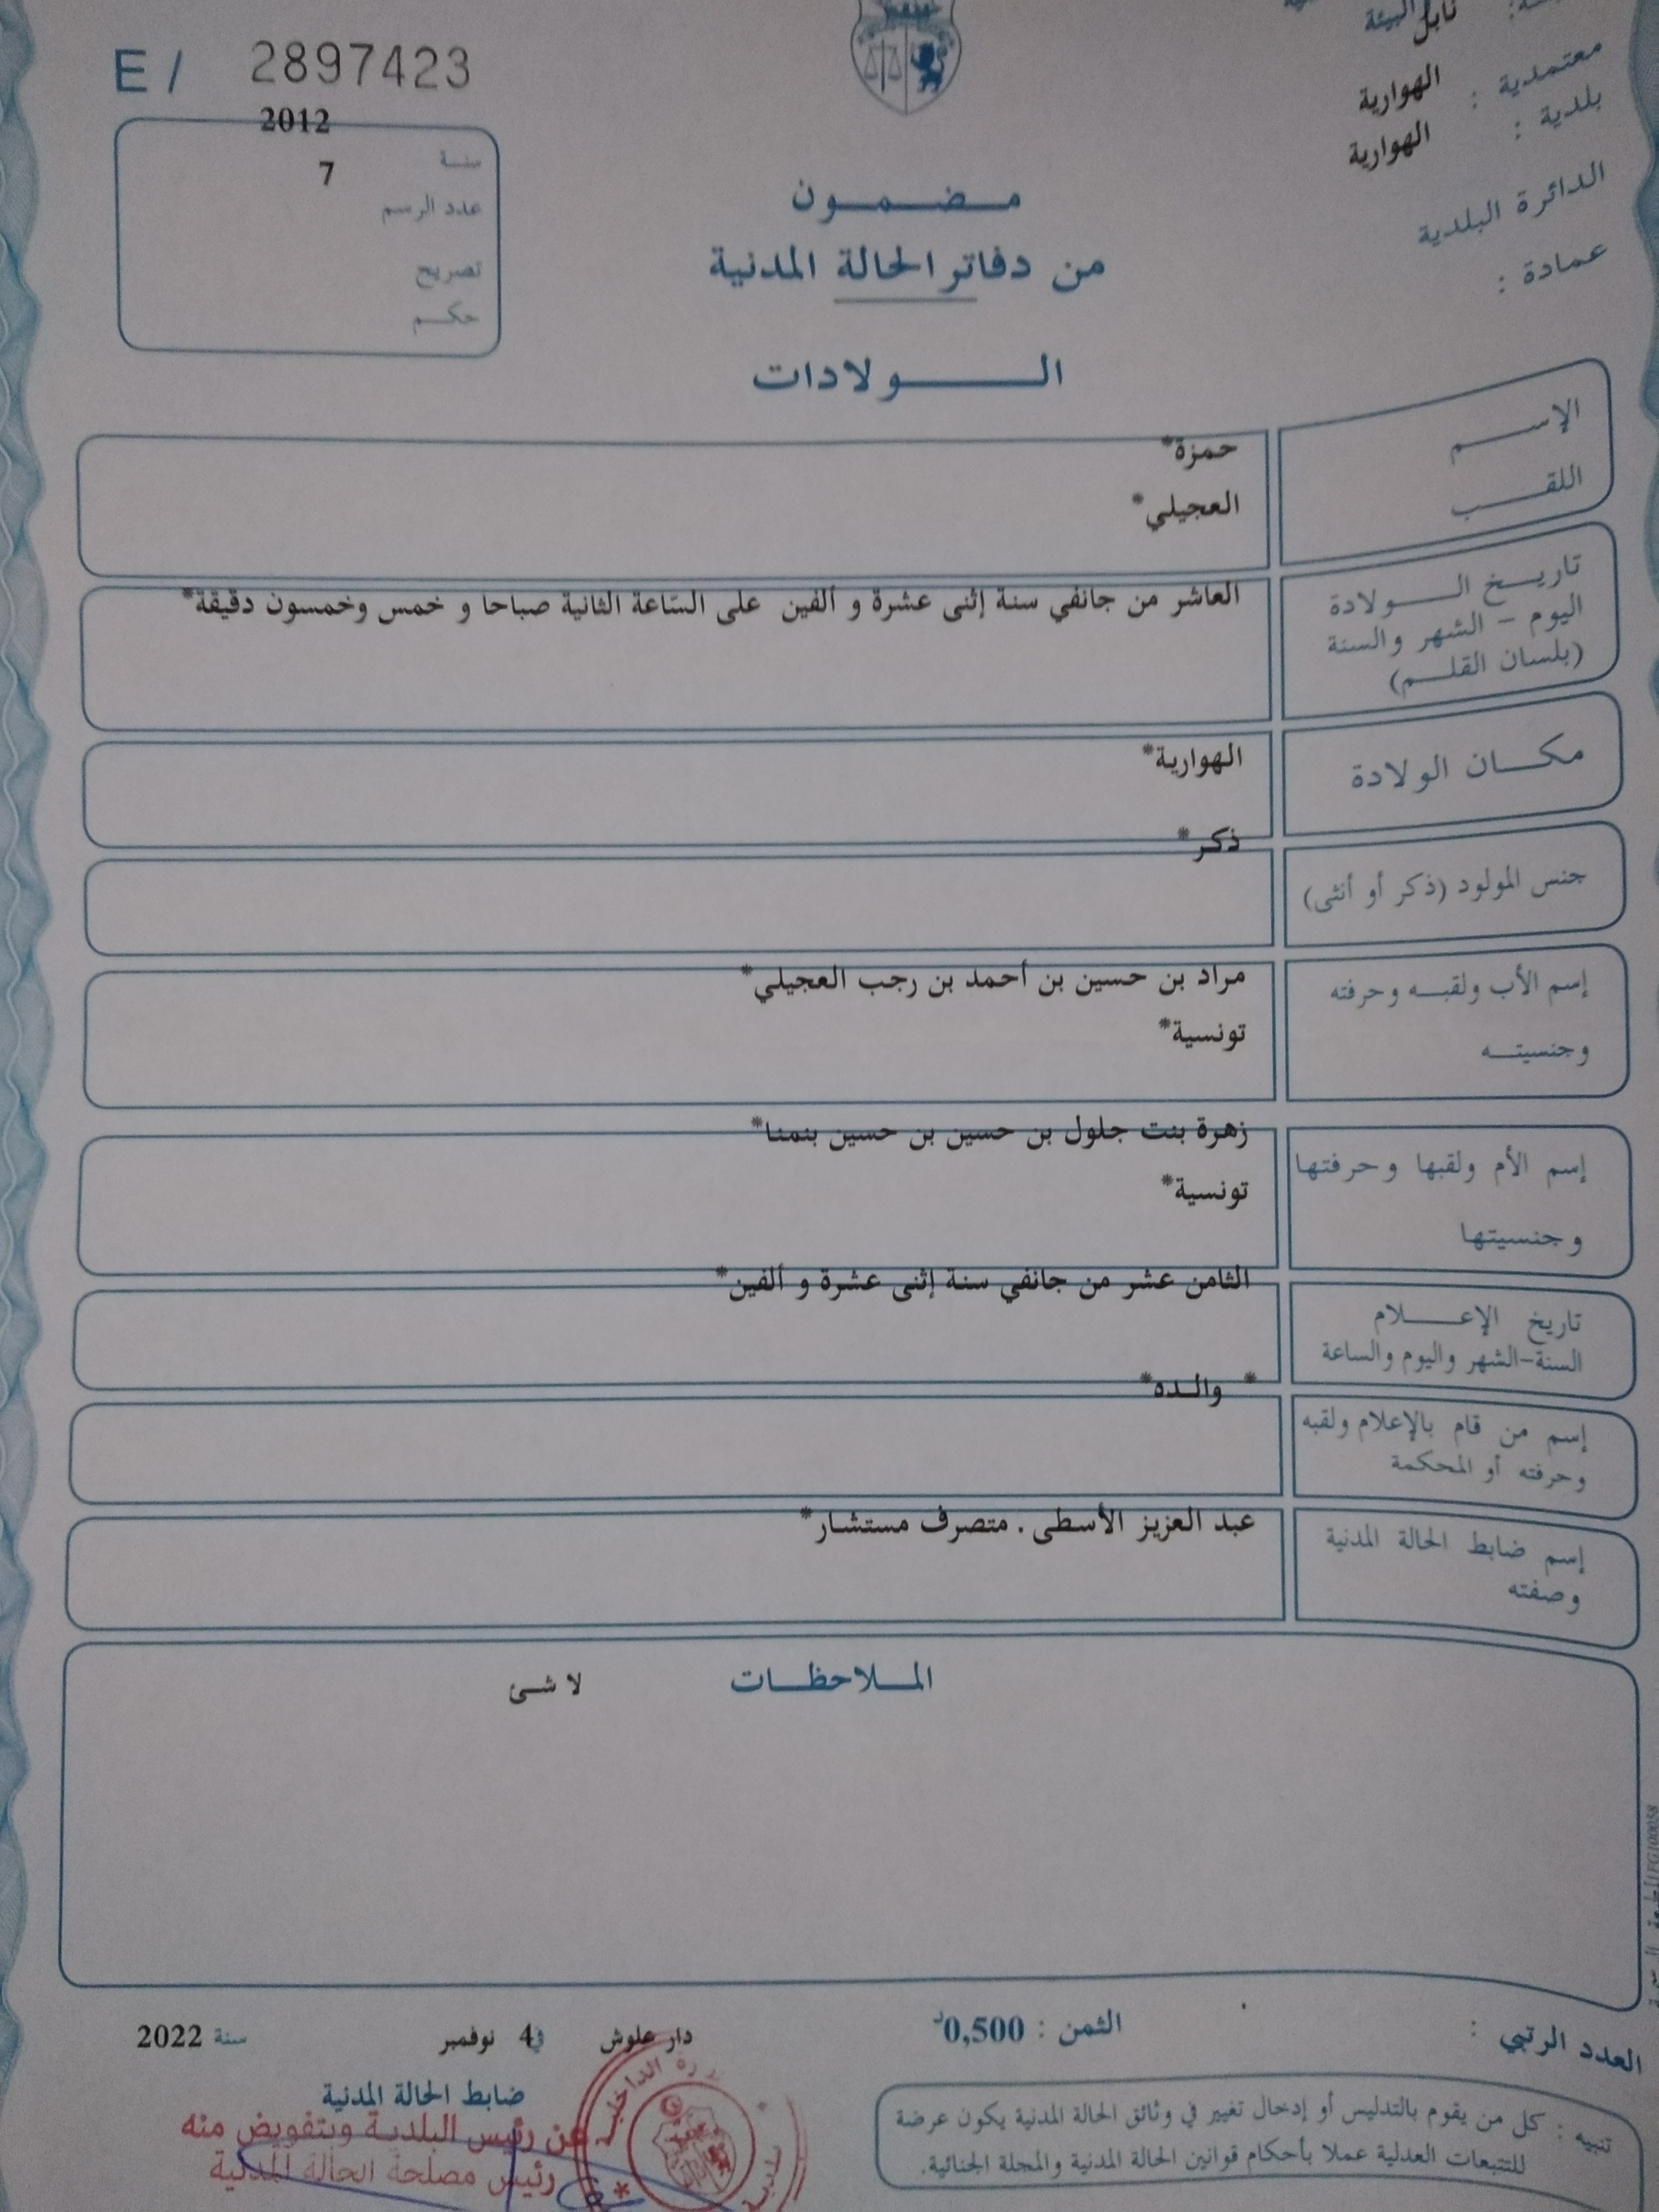 E / 2897423
2012
سنة
7
عدد الرسم
تصريح
حكم
البيئة
نابل
معتمدية : الهوارية
بلدية : الهوارية
الدائرة البلدية
عمادة :
مضمون
من دفاتر الحالة المدنية
الولادات
الإسم
حمزة*
اللقب
العجيلي*
تاريخ الولادة
اليوم - الشهر والسنة
(بلسان القلم)
العاشر من جانفي سنة إثنى عشرة و ألفين على السّاعة الثانية صباحا و خمس وخمسون دقيقة*
مكان الولادة
الهوارية*
جنس المولود (ذكر أو أنثى)
ذكر*
إسم الأب ولقبه وحرفته
وجنسيته
مراد بن حسين بن أحمد بن رجب العجيلي*
تونسية*
إسم الأم ولقبها وحرفتها
وجنسيتها
زهرة بنت جلول بن حسين بن حسين بنمنا*
تونسية*
تاريخ الإعلام
السنة-الشهر واليوم والساعة
الثامن عشر من جانفي سنة إثنى عشرة و ألفين*
إسم من قام بالإعلام ولقبه
وحرفته أو المحكمة
* والده*
إسم ضابط الحالة المدنية
وصفته
عبد العزيز الأسطى . متصرف مستشار*
الملاحظات
لا شئ
العدد الرتبي :
الثمن : 0,500د
دار علوش في 4 نوفمبر سنة 2022
ضابط الحالة المدنية
عن رئيس البلدية وبتفويض منه
رئيس مصلحة الحالة المدنية
تنبيه : كل من يقوم بالتدليس أو إدخال تغيير في وثائق الحالة المدنية يكون عرضة
للتتبعات العدلية عملا بأحكام قوانين الحالة المدنية والمجلة الجنائية.